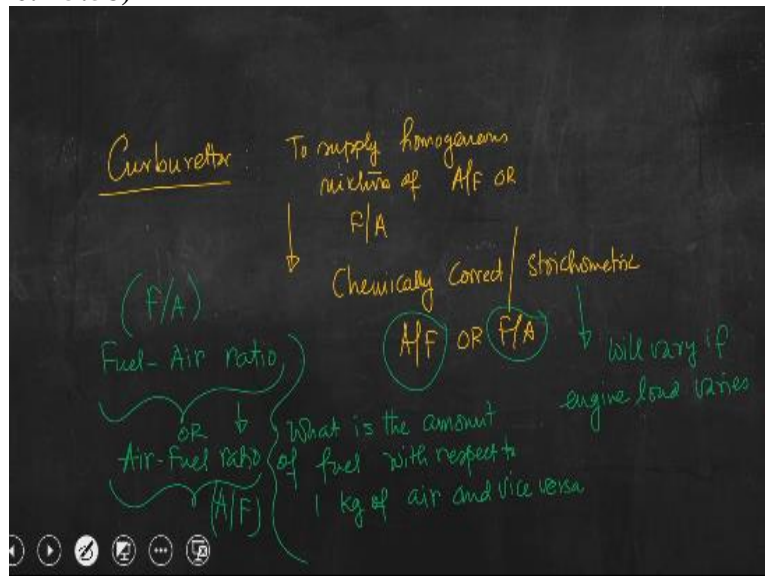 Curburettor : To supply homogeneous
mixture of A/F OR
F/A
Chemically Correct / Stoichometric
A/F OR F/A
will vary if
engine load varies
(F/A)
Fuel-Air ratio,
OR
Air-Fuel ratio
(A/F)
What is the amount
of fuel with respect to
1 kg of air and vice versa